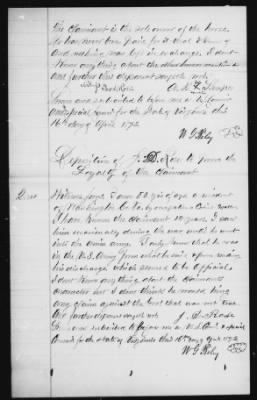 The Claimant is the sole owner of the horse
he has never been paid for it that I know of
and nothing was left in exchange. I don't
Know anything about the other
And further this deponent sayeth not.
Sworn and subscribed to before me a
Special Comr for the State of Virginia this
16th day of April 1872
W G Riley
Deposition of J. D. Rose to prove the
Loyalty of the Claimant
Witness says I am 50 yrs of age a resident
of Washington Co. Va, by occupation
I have known the claimant 10 years. I saw
him occasionally during the war until he went
into the Union Army. I only know that he was
in the U.S. Army from what he said & from seeing
his discharge which seemed to be official.
I dont know any thing about the claimants
character but I dont think he would bring
any claim against the Govt that was not true
And further deponent sayeth not. J. D. Rose
Sworn and subscribed to before me a U.S. Com & special
Comr for the state of Virginia this 16th day of April 1872
W G Riley